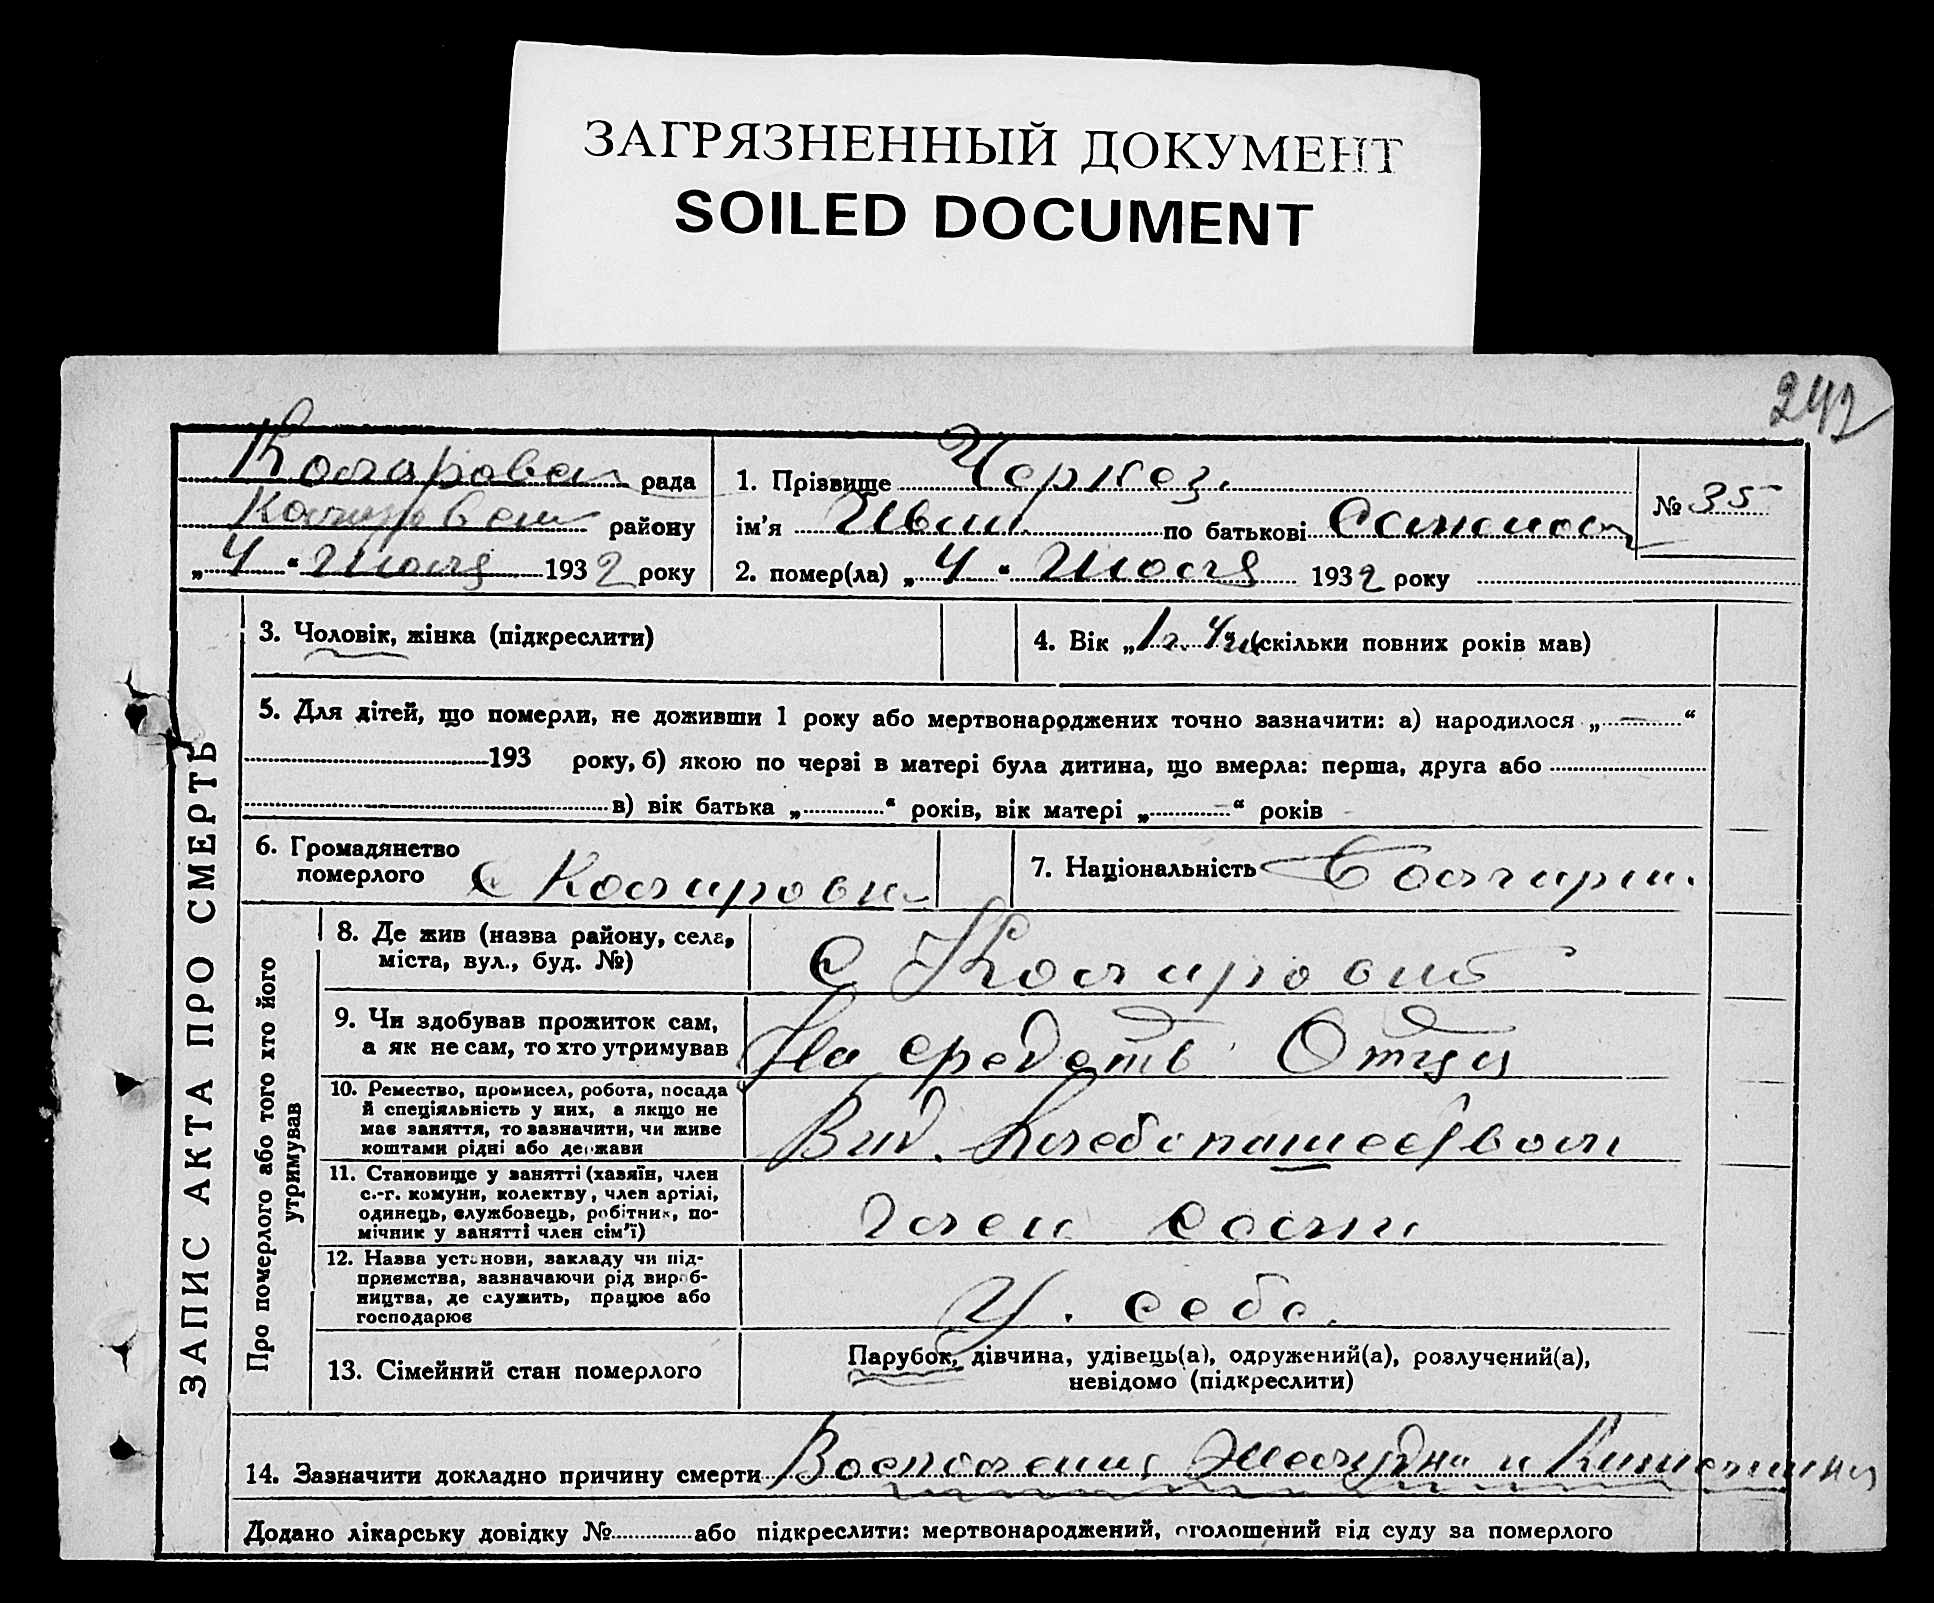 ЗАГРЯЗНЕННЫЙ ДОКУМЕНТ
SOILED DOCUMENT
242
рада
району
„ 4 “ Июля 1932 року
1. Прізвище Черкез.
ім’я Иван по батькові
2. помер(ла) „ 4 “ Июля 1932 року
№ 35
ЗАПИС АКТА ПРО СМЕРТЬ
3. Чоловік, жінка (підкреслити)
4. Вік „ 1 г. 4 (скільки повних років мав)
5. Для дітей, що померли, не доживши 1 року або мертвонароджених точно зазначити: а) народилося „ — “
193 року, б) якою по черзі в матері була дитина, що вмерла: перша, друга або
в) вік батька „ “ років, вік матері „ “ років
6. Громадянство
померлого
7. Національність Болгарин.
Про померлого або того хто його
утримував
8. Де жив (назва району, села,
міста, вул., буд. №)
с
9. Чи здобував прожиток сам,
а як не сам, то хто утримував
На средств Отца
10. Ремество, промисел, робота, посада
й спеціяльність у них, а якщо не
має заняття, то зазначити, чи живе
коштами рідні або держави
Хлебопашеством
11. Становище у занятті (хазяїн, член
с.-г. комуни, колективу, член артілі,
одинець, службовець, робітник, по-
мічник у занятті член сім’ї)
член
12. Назва установи, закладу чи під-
приємства, зазначаючи рід вироб-
ництва, де служить, працює або
господарює
У. себе.
13. Сімейний стан померлого
Парубок, дівчина, удівець(а), одружений(а), розлучений(а),
невідомо (підкреслити)
14. Зазначити докладно причину смерти Воспаления Желудка и
Додано лікарську довідку № або підкреслити: мертвонароджений, оголошений від суду за померлого